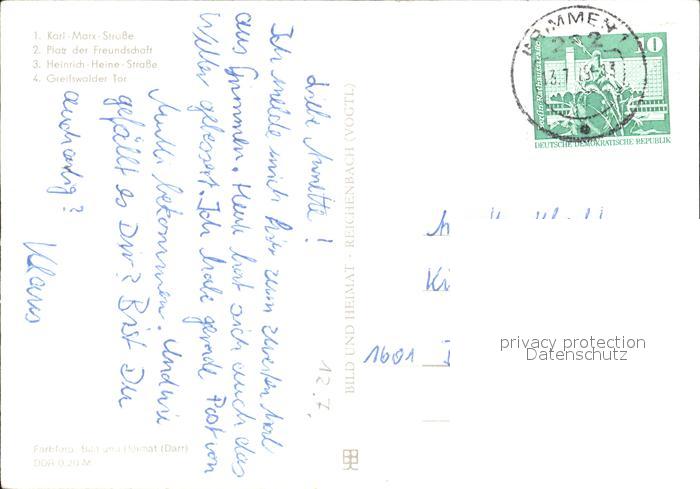 1. Karl-Marx-Straße
2. Platz der Freundschaft
3. Heinrich-Heine-Straße
4. Greifswalder Tor
Liebe Annette!
Ich melde mich hier zum zweiten Mal
aus Grimmen. Heute hat sich auch das
Wetter gebessert. Ich habe gerade Post von
Mutti bekommen. Und wie
gefällt es Dir? Bist Du
auch artig?
Klaus
12.7.
Farbfoto: Bild und Heimat (Darr)
DDR 0,20 M
BILD UND HEIMAT · REICHENBACH (VOGTL)
GRIMMEN 1
Berlin, Rathausstraße
10
DEUTSCHE DEMOKRATISCHE REPUBLIK
Ki
1601
privacy protection
Datenschutz